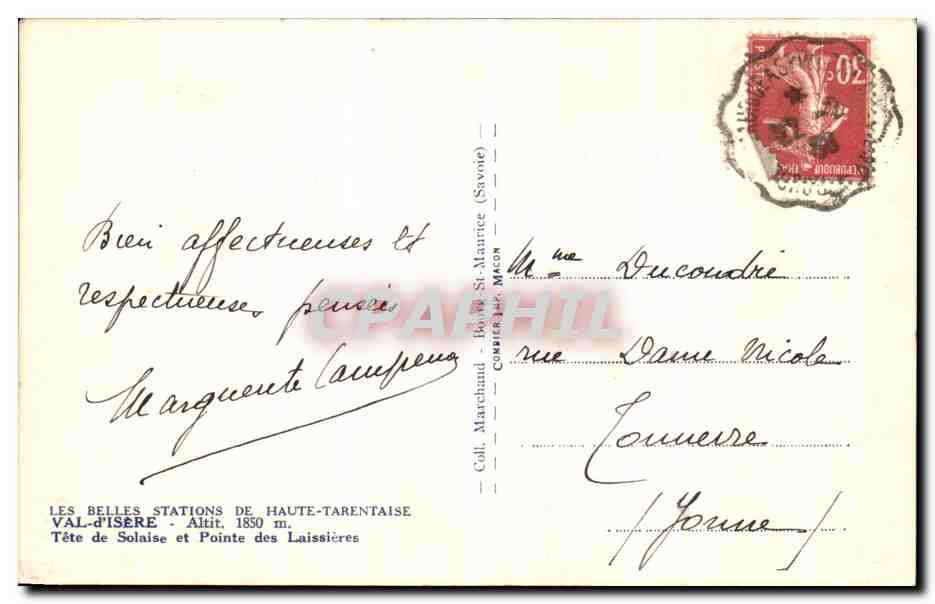 Bien affectueuses et
respectueuses pensées
Marguerite
LES BELLES STATIONS DE HAUTE-TARENTAISE
VAL-d'ISÈRE - Altit. 1850 m.
Tête de Solaise et Pointe des Laissières
Coll. Marchand - Bourg-St-Maurice (Savoie)
COMBIER IMP. MACON
CPAPHIL
30c
POSTES
REPUBLIQUE
Mme Ducoudré
rue Dame Nicole
Tonnerre
(Yonne)